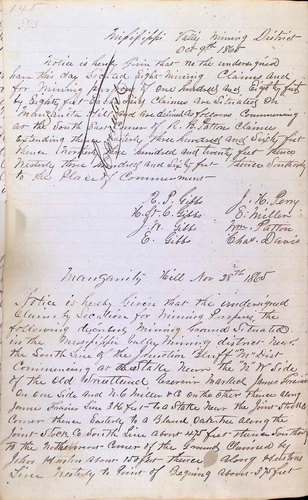 Mississippi Valley Mining District
Oct 9th 1865
Notice is hereby Given that we the undersigned
have this day located Eight Mining Claims and
for Mining purposes of One hundred and Eighty feet
by Eighty feet Each Said Claims are Situated on
Manzanita Hill and are defined as follows Commencing
at the South East corner of R. B. Patton Claims
Extending thence Three hundred and Sixty feet
thence hundred and twenty feet thence
Westerly three hundred and Sixty feet thence Southerly
to the Place of Commencement
R. S. Gibbs J. H. Perry
C. Gibbs E. Miller
J. W. Gibbs Wm Patton
E. Gibbs Chas. Davis
Manzanita Hill Nov 28th 1865
Notice is hereby Given that the undersigned
Claims by Location for Mining Purposes the
following described Mining Ground Situated
in the Mississippi Valley Mining district near
the South Line of the Junction Bluff M. Dist
Commencing at a Stake Near the N. W. Side
of the Old marked James Frasier
On One Side and N. C Miller & Co on the Other thence Along
James Frasier Line 316 feet to a Stake Near the Joint Stock Co
Corner thence Easterly to a Black Oak tree along the
Joint Stock Co South Line about 475 feet thence Southerly
to the Northernmost Corner of the Ground Claimed by
John about 150 feet thence along
Line Westerly to Point of Begining about 375 feet